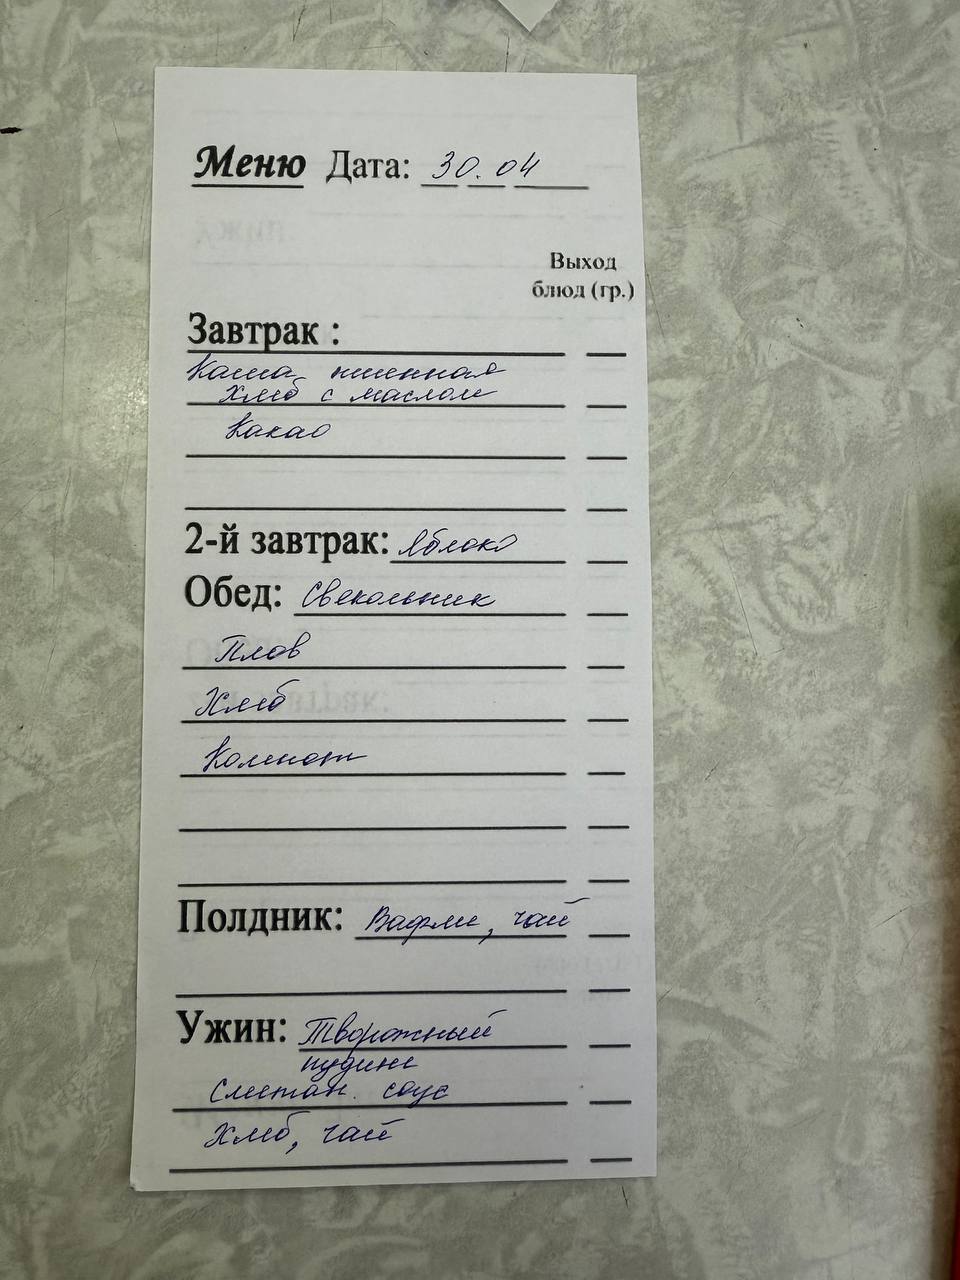 Меню Дата: 30.04
Выход
блюд (гр.)
Завтрак :
Каша пшенная
Хлеб с маслом
Какао
2-й завтрак: Яблоко
Обед: Свекольник
Плов
Хлеб
Компот
Полдник: Вафли, чай
Ужин: Творожный
пудинг
Сметан. соус
Хлеб, чай